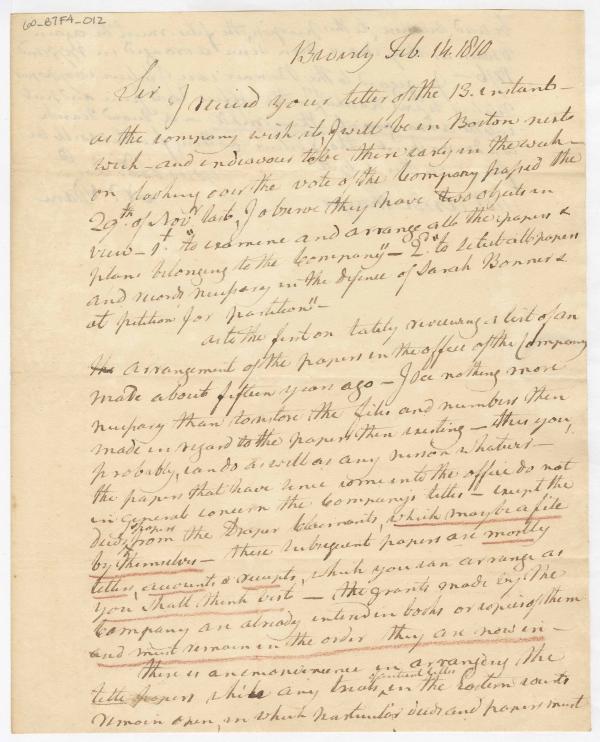 60-B7F4-012
Beverly Feb. 14. 1810
Sir I received your letter of the 13. instant—
as the company wish it, I will be in Boston next
week— and endeavour to be there early in the week—
on looking over the vote of the Company passed the
29th of Novr last, I observe they have two objects in
view— 1st. "to examine and arrange all the papers &
plans belonging to the Company"— 2. "to select all papers
and records necessary in the defence of Sarah Bonner &
al petition for partition"—
as to the first on lately reviewing a list of an
arrangement of the papers in the office of the Company
made about fifteen years ago— I see nothing more
necessary than to restore the files and numbers then
made in regard to the papers then existing— this you,
probably, can do as well as any person whatever—
the papers that have since come into the office do not
in general concern the Company's titles— except the
deeds & papers from the Draper Claimants which may be a file
by themselves— these subsequent papers are mostly
letters, accounts & receipts, which you can arrange as
you shall think best— the grants made by the
Company are already entered in books or copies of them
and must remain in the order they are now in—
there is an inconvenience in arranging the
title papers while any trials of antient titles in the Eastern courts
remain open, in which particular deeds and papers must